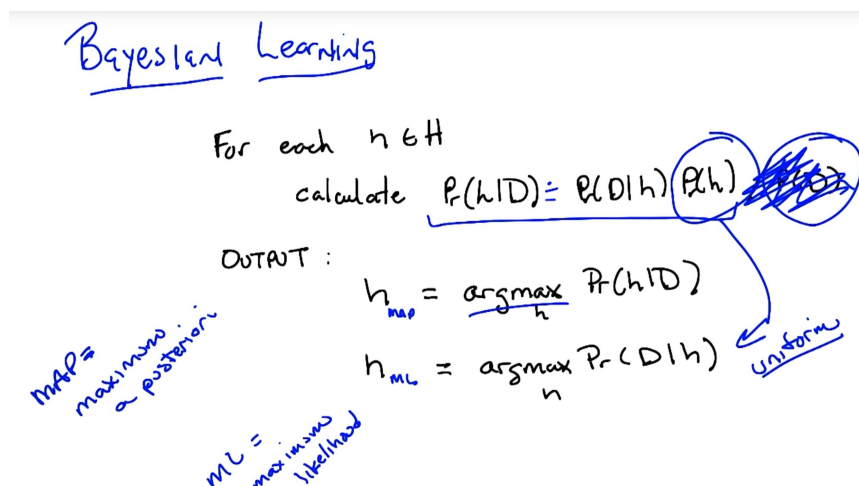 Bayesian Learning
For each h ∈ H
calculate Pr(h|D) ≐ Pr(D|h) Pr(h)
OUTPUT :
h_MAP = argmax_h Pr(h|D)
h_ML = argmax_h Pr(D|h)
uniform
MAP =
maximum
a posteriori
ML =
maximum
likelihood